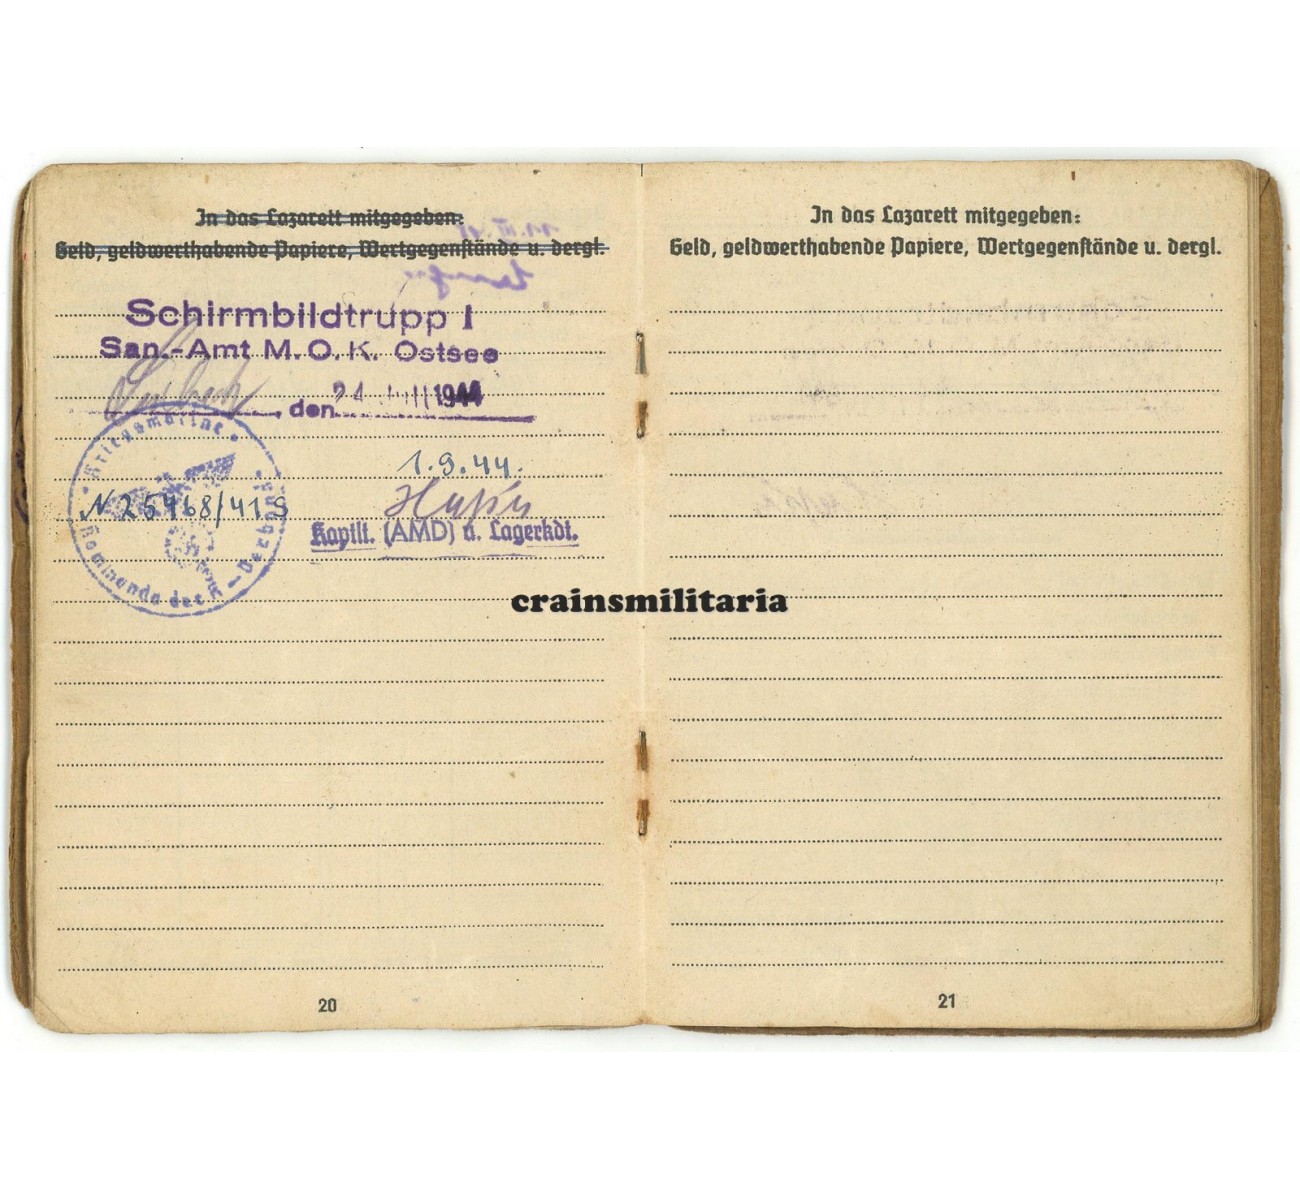 In das Lazarett mitgegeben:
Geld, geldwerthabende Papiere, Wertgegenstände u. dergl.
Schirmbildtrupp I
San.-Amt M.O.K. Ostsee
, den 24 1944
Kriegsmarine
Kommando der
1.9.44.
N 25468/41 S
Kaptlt. (AMD) u. Lagerkdt.
20
In das Lazarett mitgegeben:
Geld, geldwerthabende Papiere, Wertgegenstände u. dergl.
21
crainsmilitaria